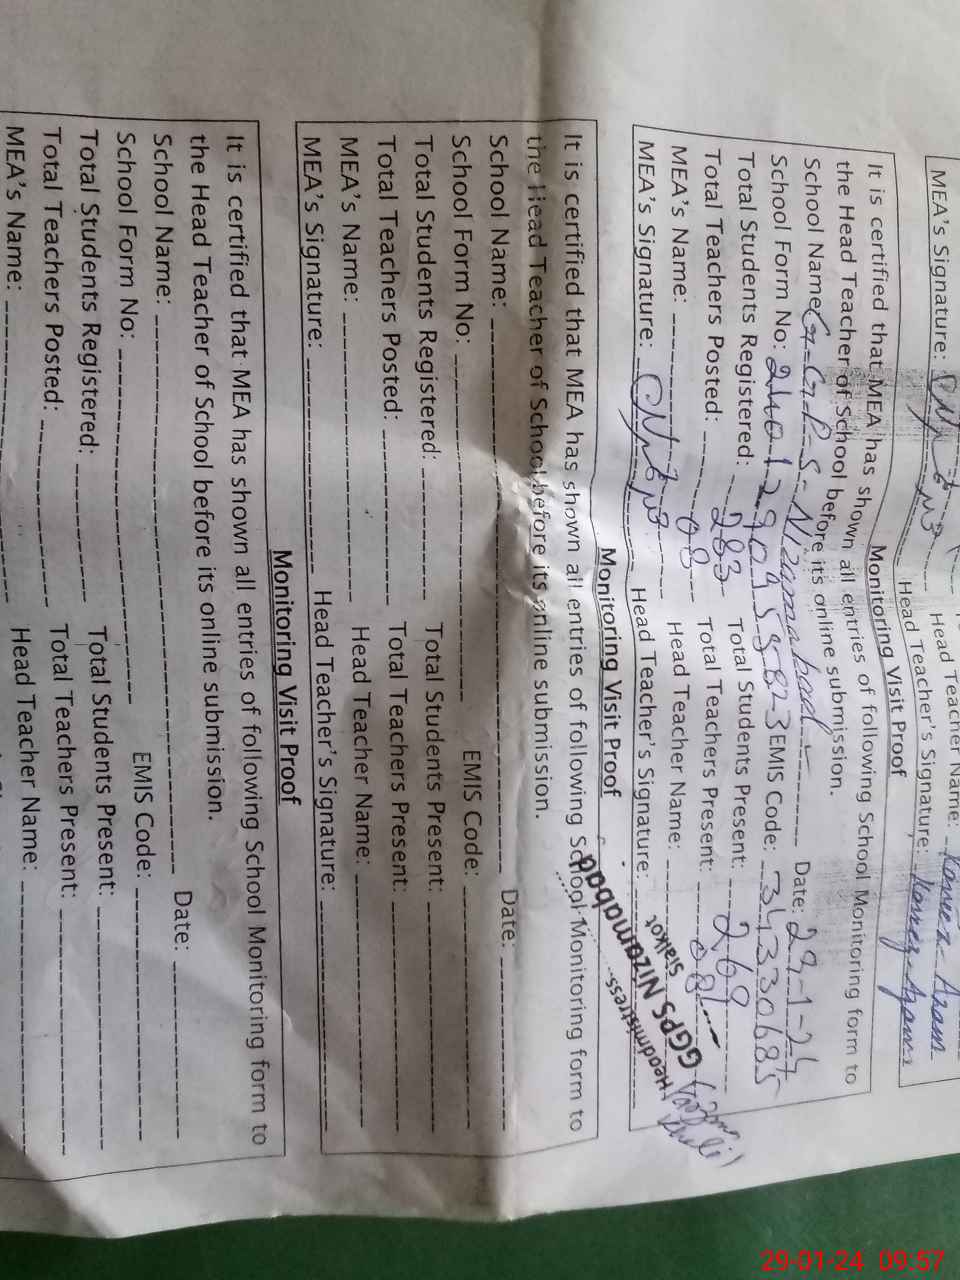 Head Teacher Name: Kaneez Azam
MEA's Signature: Head Teacher's Signature: Kaneez Azam
Monitoring Visit Proof
It is certified that MEA has shown all entries of following School Monitoring form to
the Head Teacher of School before its online submission.
School Name: G.G.P.S. Nizamabad Date: 29-1-24
School Form No: EMIS Code: 34330685
Total Students Registered: 283 Total Students Present: 269
Total Teachers Posted: 08 Total Teachers Present: 08
MEA's Name: Head Teacher Name:
MEA's Signature: Head Teacher's Signature:
Headmistress
GGPS Nizamabad
Sialkot
Monitoring Visit Proof
It is certified that MEA has shown all entries of following School Monitoring form to
the Head Teacher of School before its online submission.
School Name: Date:
School Form No: EMIS Code:
Total Students Registered: Total Students Present:
Total Teachers Posted: Total Teachers Present:
MEA's Name: Head Teacher Name:
MEA's Signature: Head Teacher's Signature:
Monitoring Visit Proof
It is certified that MEA has shown all entries of following School Monitoring form to
the Head Teacher of School before its online submission.
School Name: Date:
School Form No: EMIS Code:
Total Students Registered: Total Students Present:
Total Teachers Posted: Total Teachers Present:
MEA's Name: Head Teacher Name:
29-01-24 09:57